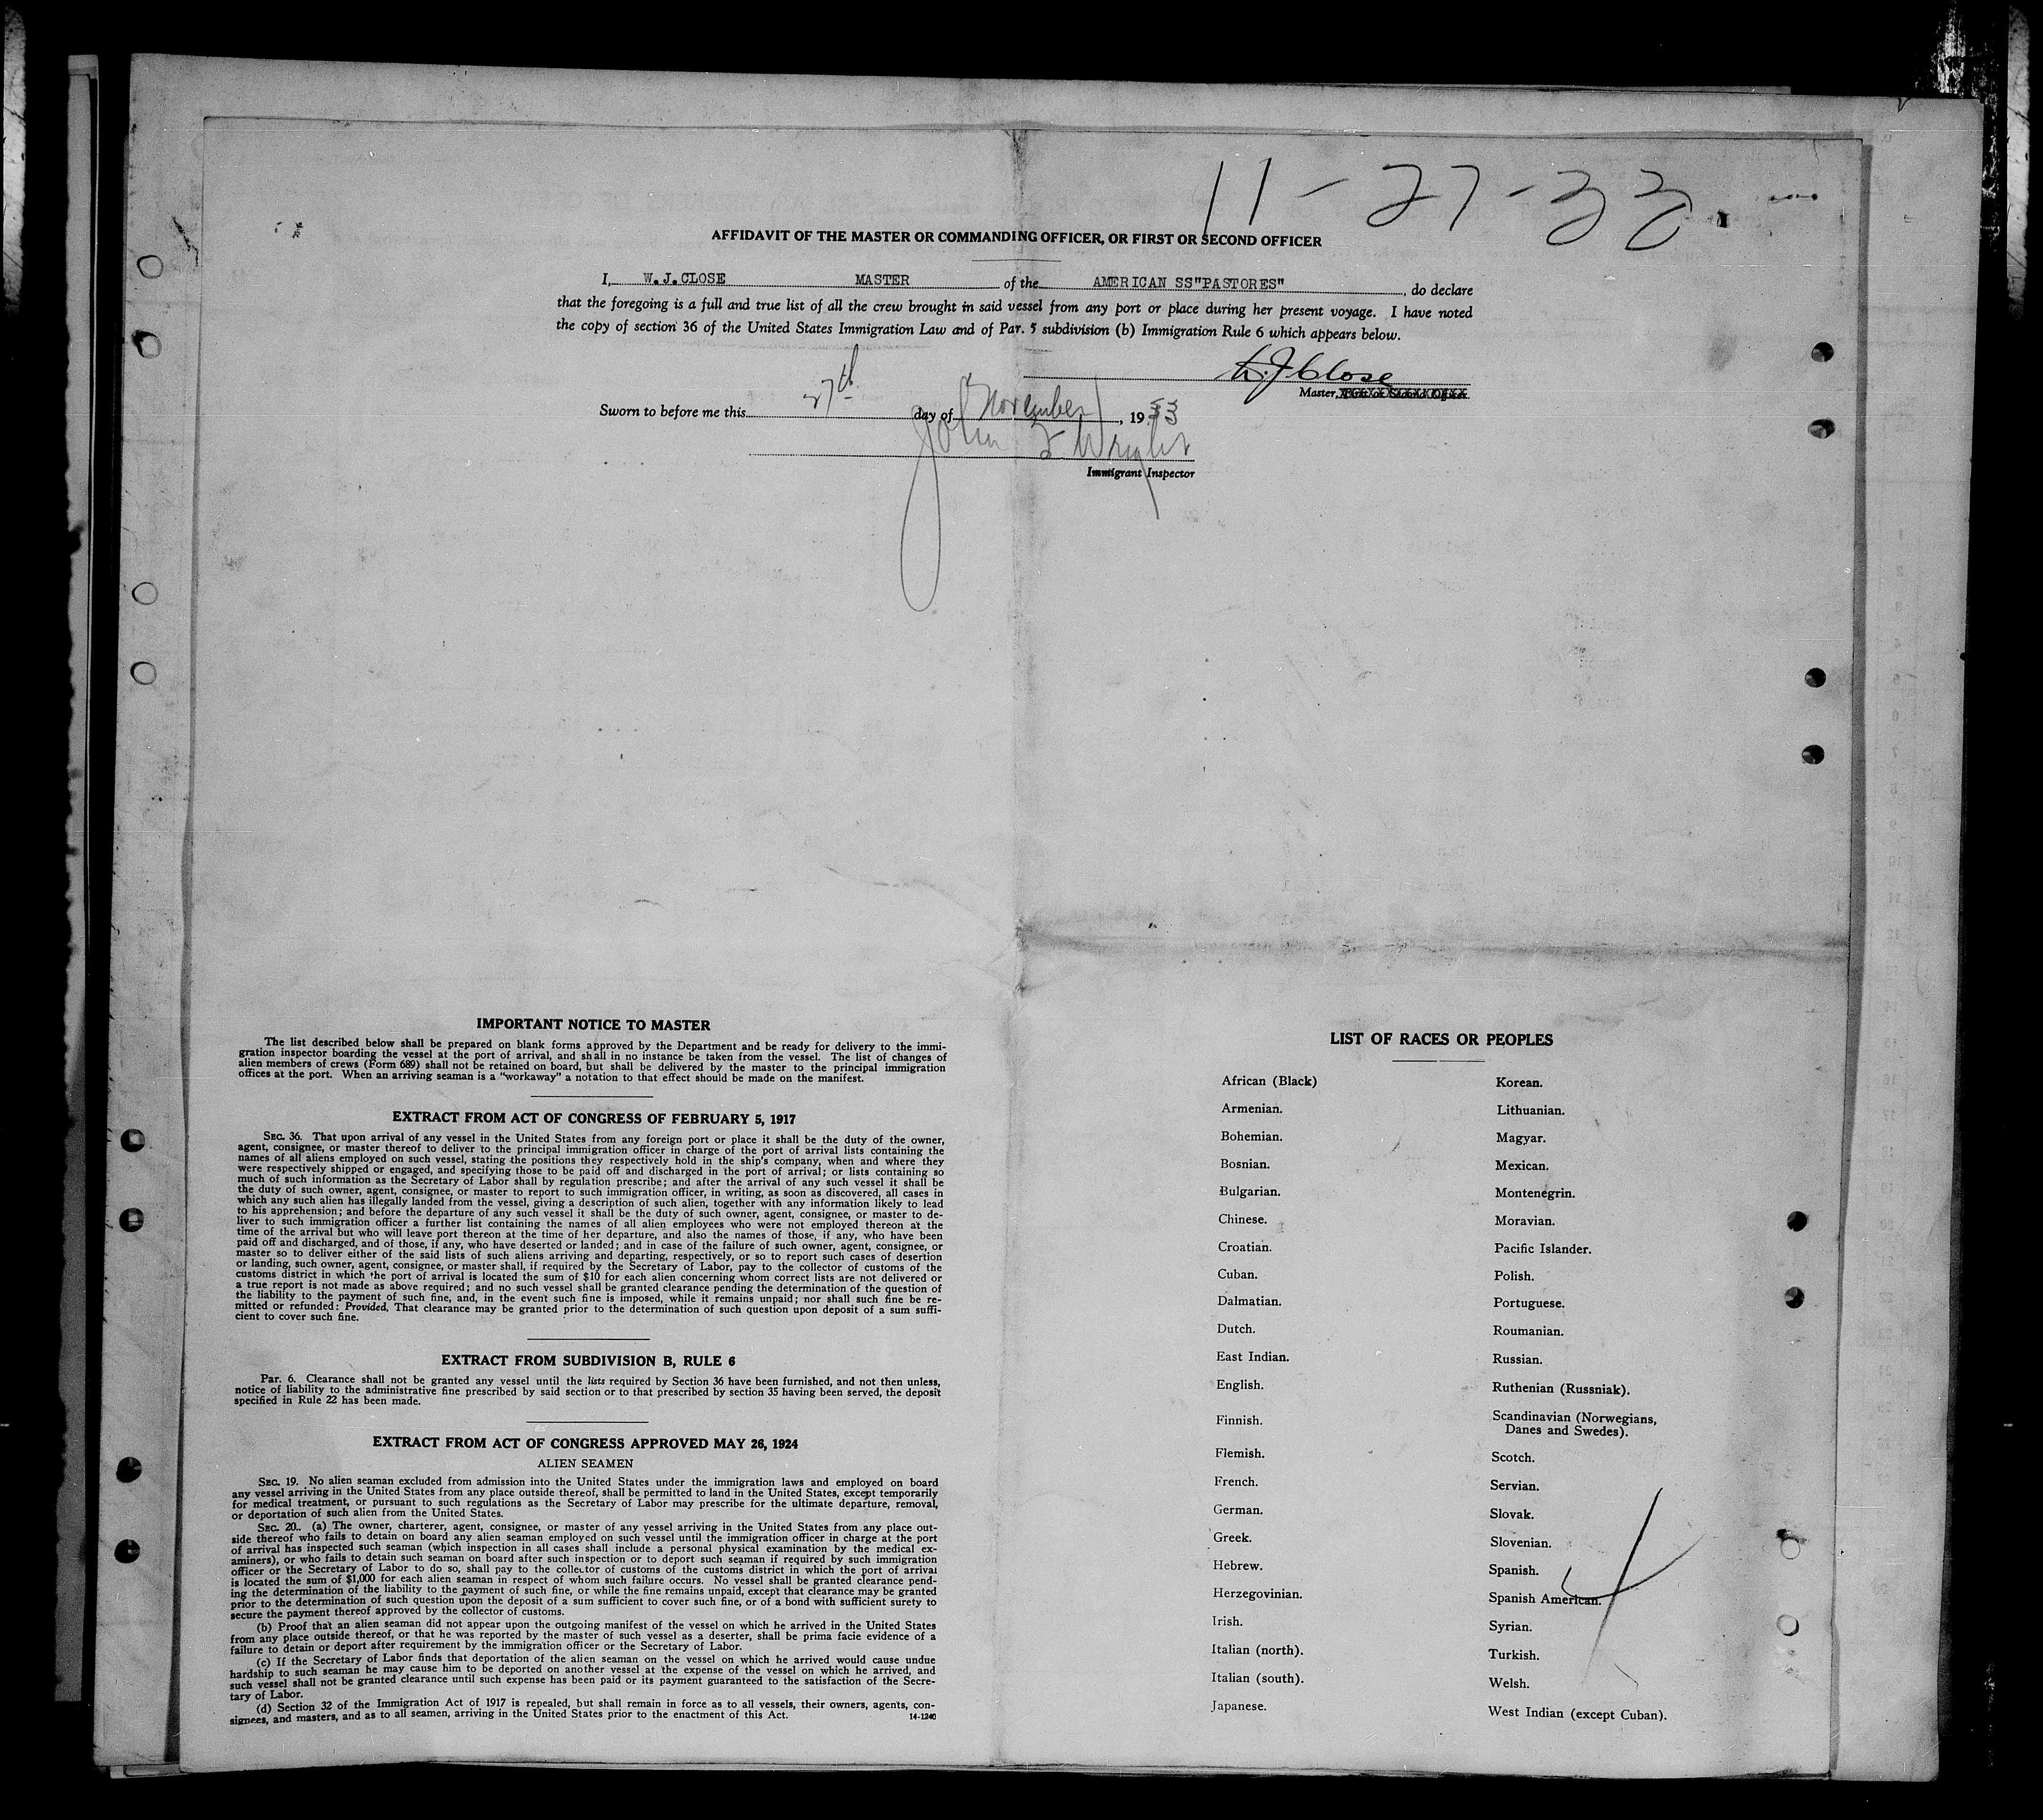 11-27-33
AFFIDAVIT OF THE MASTER OR COMMANDING OFFICER, OR FIRST OR SECOND OFFICER
I, W.J.CLOSE MASTER of the AMERICAN SS"PASTORES", do declare
that the foregoing is a full and true list of all the crew brought in said vessel from any port or place during her present voyage. I have noted
the copy of section 36 of the United States Immigration Law and of Par. 5 subdivision (b) Immigration Rule 6 which appears below.
W. J. Close
Master, First or Second Officer.
Sworn to before me this 27th day of November, 1933
John Wright
Immigrant Inspector
IMPORTANT NOTICE TO MASTER
The list described below shall be prepared on blank forms approved by the Department and be ready for delivery to the immi-
gration inspector boarding the vessel at the port of arrival, and shall in no instance be taken from the vessel. The list of changes of
alien members of crews (Form 689) shall not be retained on board, but shall be delivered by the master to the principal immigration
offices at the port. When an arriving seaman is a "workaway" a notation to that effect should be made on the manifest.
EXTRACT FROM ACT OF CONGRESS OF FEBRUARY 5, 1917
SEC. 36. That upon arrival of any vessel in the United States from any foreign port or place it shall be the duty of the owner,
agent, consignee, or master thereof to deliver to the principal immigration officer in charge of the port of arrival lists containing the
names of all aliens employed on such vessel, stating the positions they respectively hold in the ship's company, when and where they
were respectively shipped or engaged, and specifying those to be paid off and discharged in the port of arrival; or lists containing so
much of such information as the Secretary of Labor shall by regulation prescribe; and after the arrival of any such vessel it shall be
the duty of such owner, agent, consignee, or master to report to such immigration officer, in writing, as soon as discovered, all cases in
which any such alien has illegally landed from the vessel, giving a description of such alien, together with any information likely to lead
to his apprehension; and before the departure of any such vessel it shall be the duty of such owner, agent, consignee, or master to de-
liver to such immigration officer a further list containing the names of all alien employees who were not employed thereon at the
time of the arrival but who will leave port thereon at the time of her departure, and also the names of those, if any, who have been
paid off and discharged, and of those, if any, who have deserted or landed; and in case of the failure of such owner, agent, consignee, or
master so to deliver either of the said lists of such aliens arriving and departing, respectively, or so to report such cases of desertion
or landing, such owner, agent, consignee, or master shall, if required by the Secretary of Labor, pay to the collector of customs of the
customs district in which the port of arrival is located the sum of $10 for each alien concerning whom correct lists are not delivered or
a true report is not made as above required; and no such vessel shall be granted clearance pending the determination of the question of
the liability to the payment of such fine, and, in the event such fine is imposed, while it remains unpaid; nor shall such fine be re-
mitted or refunded: Provided, That clearance may be granted prior to the determination of such question upon deposit of a sum suffi-
cient to cover such fine.
EXTRACT FROM SUBDIVISION B, RULE 6
Par. 6. Clearance shall not be granted any vessel until the lists required by Section 36 have been furnished, and not then unless,
notice of liability to the administrative fine prescribed by said section or to that prescribed by section 35 having been served, the deposit
specified in Rule 22 has been made.
EXTRACT FROM ACT OF CONGRESS APPROVED MAY 26, 1924
ALIEN SEAMEN
SEC. 19. No alien seaman excluded from admission into the United States under the immigration laws and employed on board
any vessel arriving in the United States from any place outside thereof, shall be permitted to land in the United States, except temporarily
for medical treatment, or pursuant to such regulations as the Secretary of Labor may prescribe for the ultimate departure, removal,
or deportation of such alien from the United States.
SEC. 20.. (a) The owner, charterer, agent, consignee, or master of any vessel arriving in the United States from any place out-
side thereof who fails to detain on board any alien seaman employed on such vessel until the immigration officer in charge at the port
of arrival has inspected such seaman (which inspection in all cases shall include a personal physical examination by the medical ex-
aminers), or who fails to detain such seaman on board after such inspection or to deport such seaman if required by such immigration
officer or the Secretary of Labor to do so, shall pay to the collector of customs of the customs district in which the port of arrival
is located the sum of $1,000 for each alien seaman in respect of whom such failure occurs. No vessel shall be granted clearance pend-
ing the determination of the liability to the payment of such fine, or while the fine remains unpaid, except that clearance may be granted
prior to the determination of such question upon the deposit of a sum sufficient to cover such fine, or of a bond with sufficient surety to
secure the payment thereof approved by the collector of customs.
(b) Proof that an alien seaman did not appear upon the outgoing manifest of the vessel on which he arrived in the United States
from any place outside thereof, or that he was reported by the master of such vessel as a deserter, shall be prima facie evidence of a
failure to detain or deport after requirement by the immigration officer or the Secretary of Labor.
(c) If the Secretary of Labor finds that deportation of the alien seaman on the vessel on which he arrived would cause undue
hardship to such seaman he may cause him to be deported on another vessel at the expense of the vessel on which he arrived, and
such vessel shall not be granted clearance until such expense has been paid or its payment guaranteed to the satisfaction of the Secre-
tary of Labor.
(d) Section 32 of the Immigration Act of 1917 is repealed, but shall remain in force as to all vessels, their owners, agents, con-
signees, and masters, and as to all seamen, arriving in the United States prior to the enactment of this Act.
14-1240
LIST OF RACES OR PEOPLES
African (Black)
Armenian.
Bohemian.
Bosnian.
Bulgarian.
Chinese.
Croatian.
Cuban.
Dalmatian.
Dutch.
East Indian.
English.
Finnish.
Flemish.
French.
German.
Greek.
Hebrew.
Herzegovinian.
Irish.
Italian (north).
Italian (south).
Japanese.
Korean.
Lithuanian.
Magyar.
Mexican.
Montenegrin.
Moravian.
Pacific Islander.
Polish.
Portuguese.
Roumanian.
Russian.
Ruthenian (Russniak).
Scandinavian (Norwegians,
Danes and Swedes).
Scotch.
Servian.
Slovak.
Slovenian.
Spanish.
Spanish American.
Syrian.
Turkish.
Welsh.
West Indian (except Cuban).